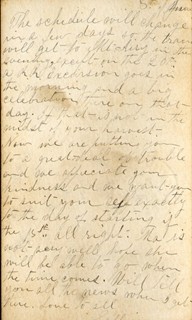 5th of June
The schedule will change
in a few days so the train
will get to McCleery in the
evening, except on the 20th
a R.R. excursion goes in
the morning, and a big
celebration there on that
day. If that is not in the
midst of your harvest.
Now we are putting you
to a great deal of trouble
and we appreciate your
kindness and we want you
to suit your selves exactly
to the day of starting, is
the 15th all right. That is
not soon, will hope she
will be able to go when
the time comes. Will tell
you all the news when I get
there. Love to all